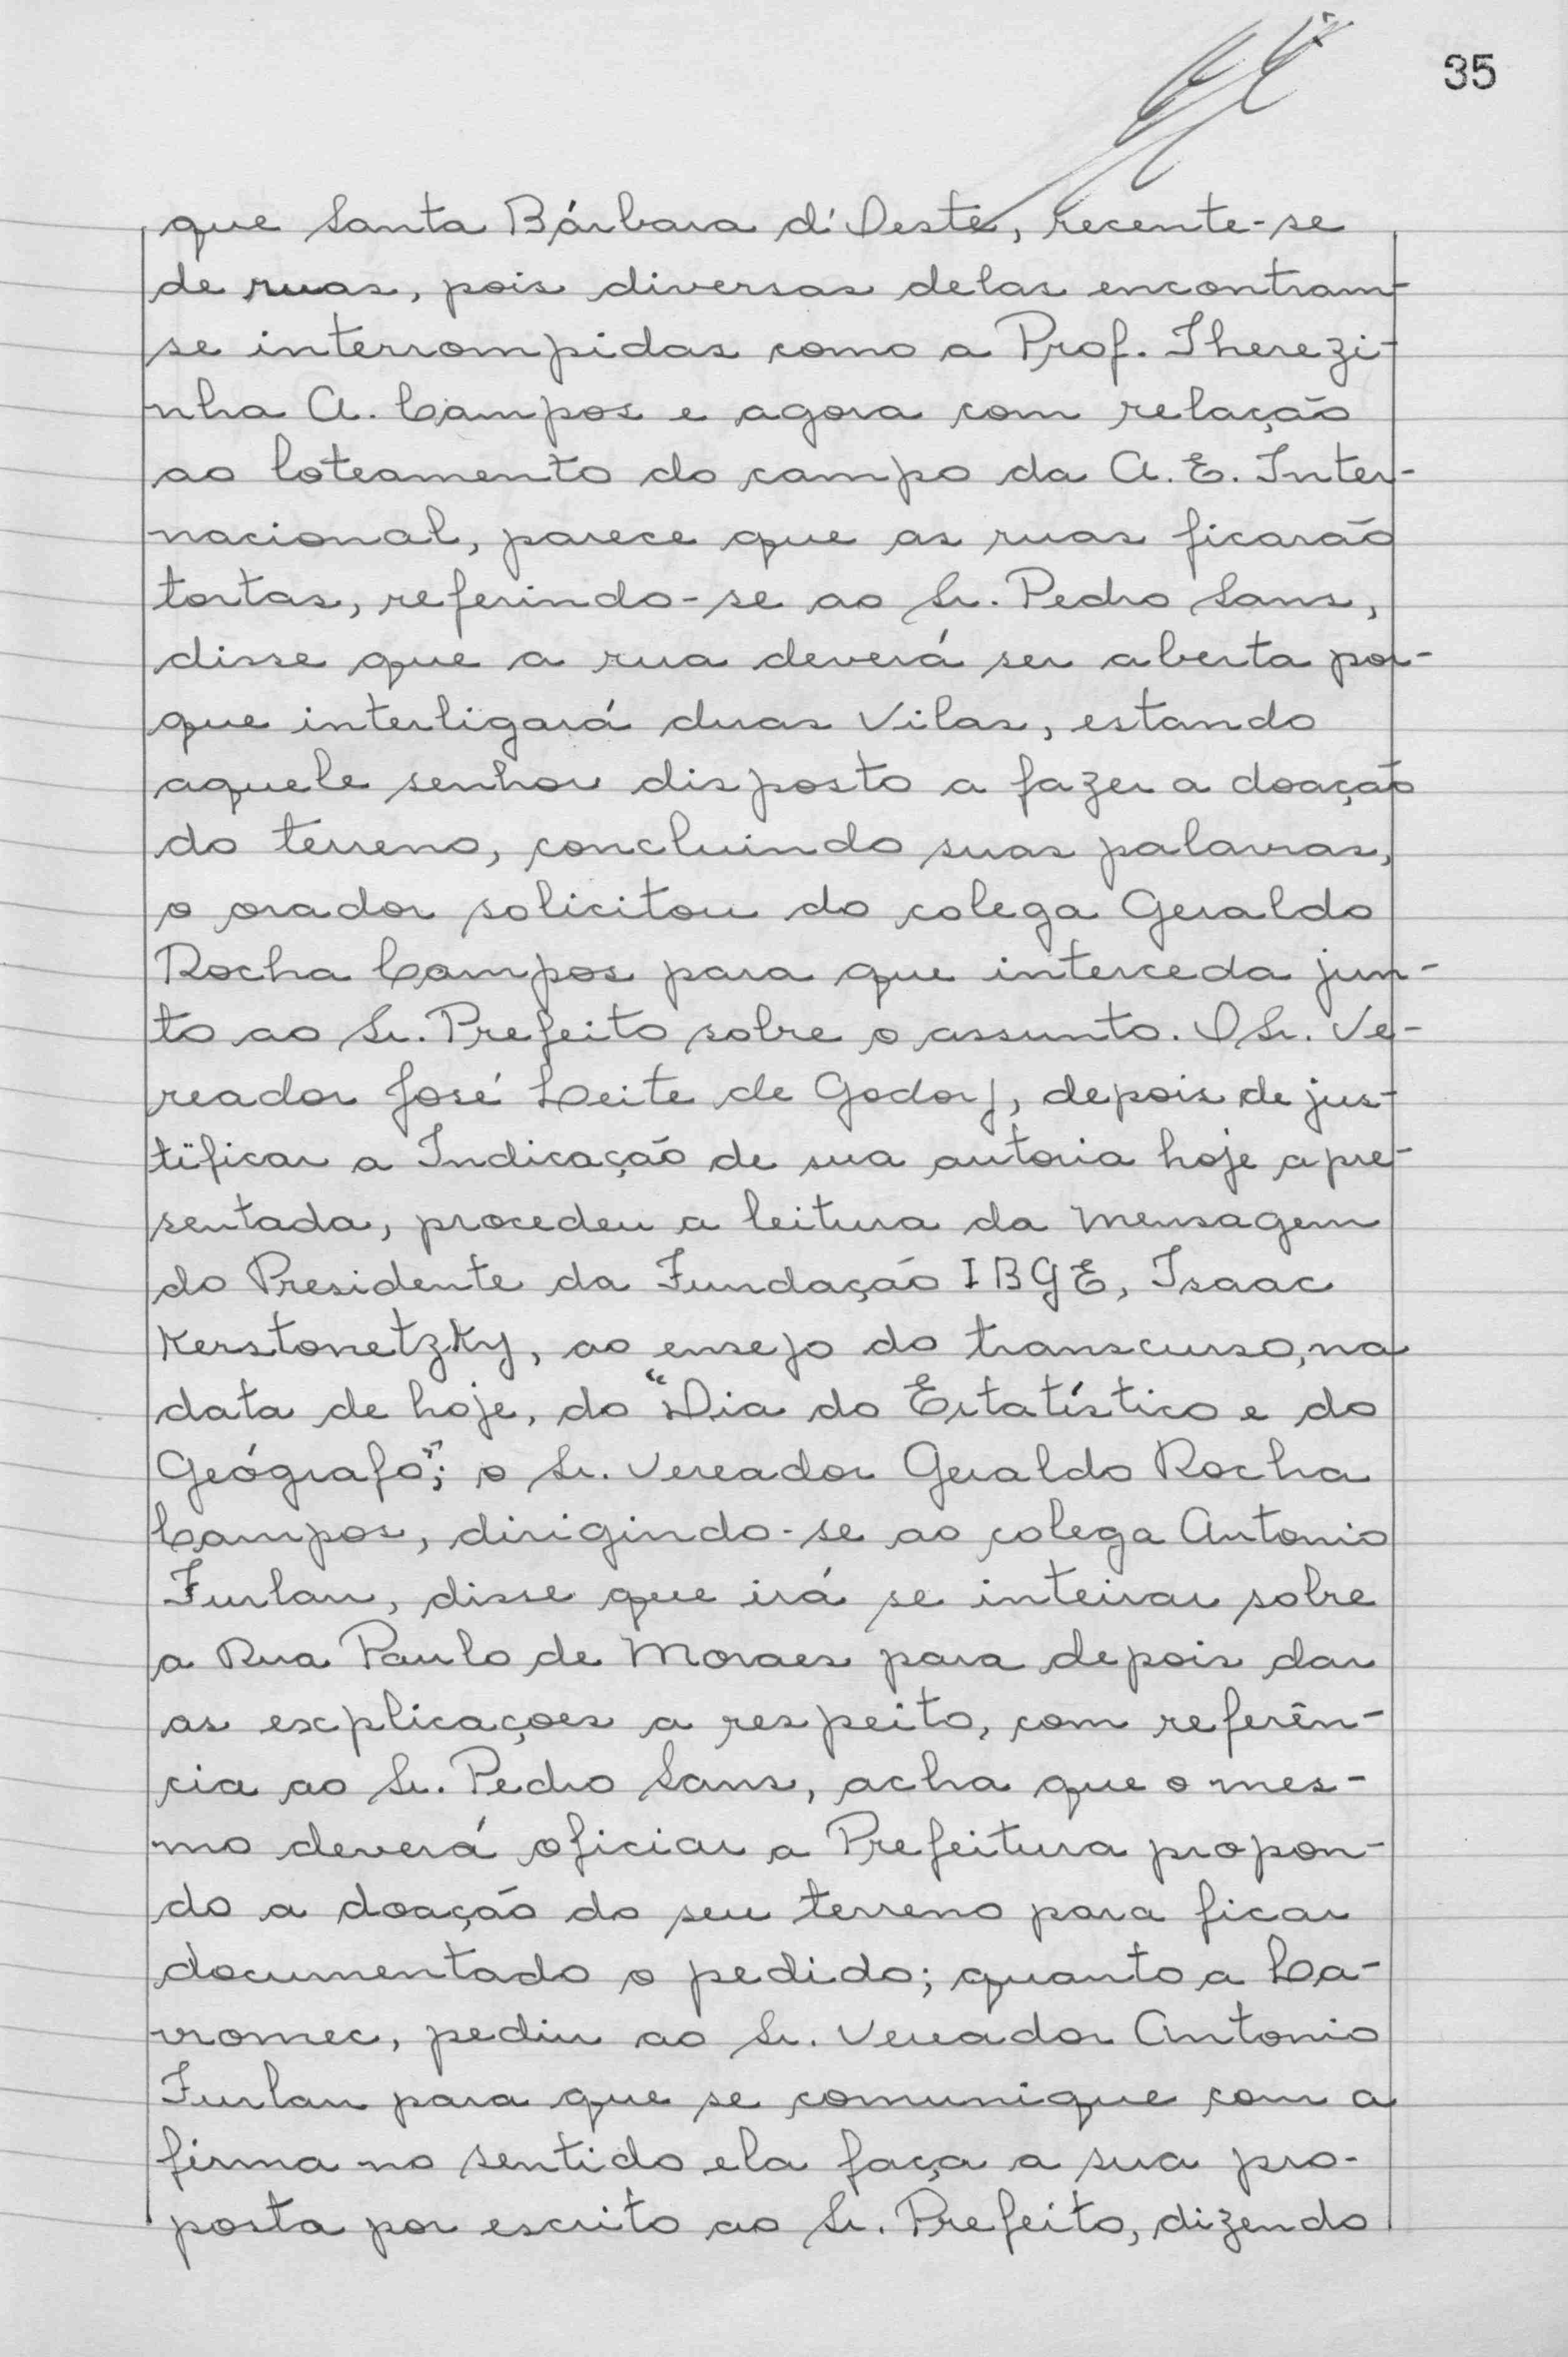 35
que Santa Bárbara d'Oeste, recente-se
de ruas, pois diversas delas encontram-
se interrompidas como a Prof. Therezi-
nha A. Campos e agora com relação
ao loteamento do campo da A. E. Inter-
nacional, parece que as ruas ficarão
tortas, referindo-se ao Sr. Pedro Sans,
disse que a rua deverá ser aberta por-
que interligará duas Vilas, estando
aquele senhor disposto a fazer a doação
do terreno, concluindo suas palavras,
o orador solicitou do colega Geraldo
Rocha Campos para que interceda jun-
to ao Sr. Prefeito sobre o assunto. O Sr. Ve-
reador José Leite de Godoy, depois de jus-
tificar a Indicação de sua autoria hoje apre-
sentada, procedeu a leitura da mensagem
do Presidente da Fundação IBGE, Isaac
Kerstonetzky, ao ensejo do transcurso, na
data de hoje, do "Dia do Estatístico e do
Geógrafo"; o Sr. Vereador Geraldo Rocha
Campos, dirigindo-se ao colega Antonio
Furlan, disse que irá se inteirar sobre
a Rua Paulo de Moraes para depois dar
as explicaçoes a respeito, com referên-
cia ao Sr. Pedro Sans, acha que o mes-
mo deverá oficiar a Prefeitura propon-
do a doação do seu terreno para ficar
documentado o pedido; quanto a La-
vromec, pediu ao Sr. Vereador Antonio
Furlan para que se comunique com a
firma no sentido ela faça a sua pro-
posta por escrito ao Sr. Prefeito, dizendo